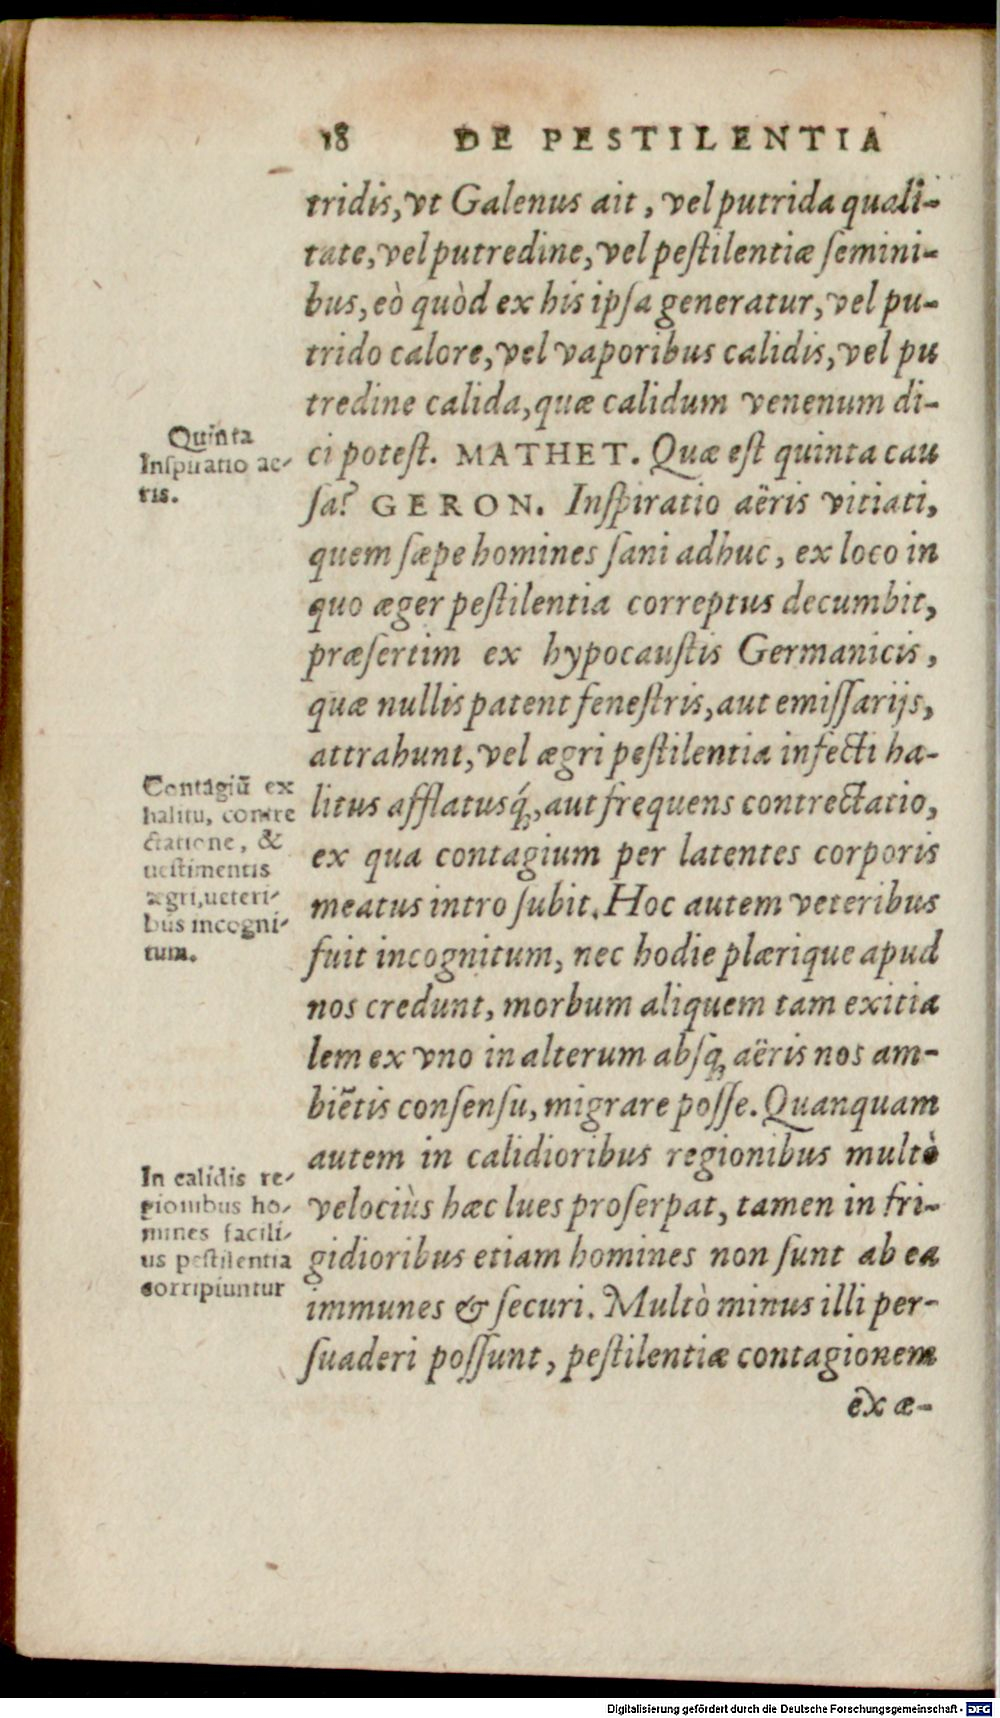 18 DE PESTILENTIA
tridis, vt Galenus ait, vel putrida quali-
tate, vel putredine, vel pestilentiæ semini-
bus, eò quòd ex his ipsa generatur, vel pu-
trido calore, vel vaporibus calidis, vel pu
tredine calida, quæ calidum venenum di-
ci potest. MATHET. Quæ est quinta cau
sa? GERON. Inspiratio aëris vitiati,
quem sæpe homines sani adhuc, ex loco in
quo æger pestilentia correptus decumbit,
præsertim ex hypocaustis Germanicis,
quæ nullis patent fenestris, aut emissarijs,
attrahunt, vel ægri pestilentia infecti ha-
litus afflatusq́;, aut frequens contrectatio,
ex qua contagium per latentes corporis
meatus intro subit. Hoc autem veteribus
fuit incognitum, nec hodie plærique apud
nos credunt, morbum aliquem tam exitia
lem ex vno in alterum absq; aëris nos am-
biẽtis consensu, migrare posse. Quanquam
autem in calidioribus regionibus multò
velociùs hæc lues proserpat, tamen in fri-
gidioribus etiam homines non sunt ab ea
immunes & securi. Multò minus illi per-
suaderi possunt, pestilentiæ contagionem
ex æ-
Quinta
Inspiratio ae-
ris.
Contagiũ ex
halitu, contre
ctatione, &
uestimentis
ægri, ueteri-
bus incogni-
tum.
In calidis re-
gionibus ho-
mines facili-
us pestilentia
corripiuntur
Digitalisierung gefördert durch die Deutsche Forschungsgemeinschaft - DFG